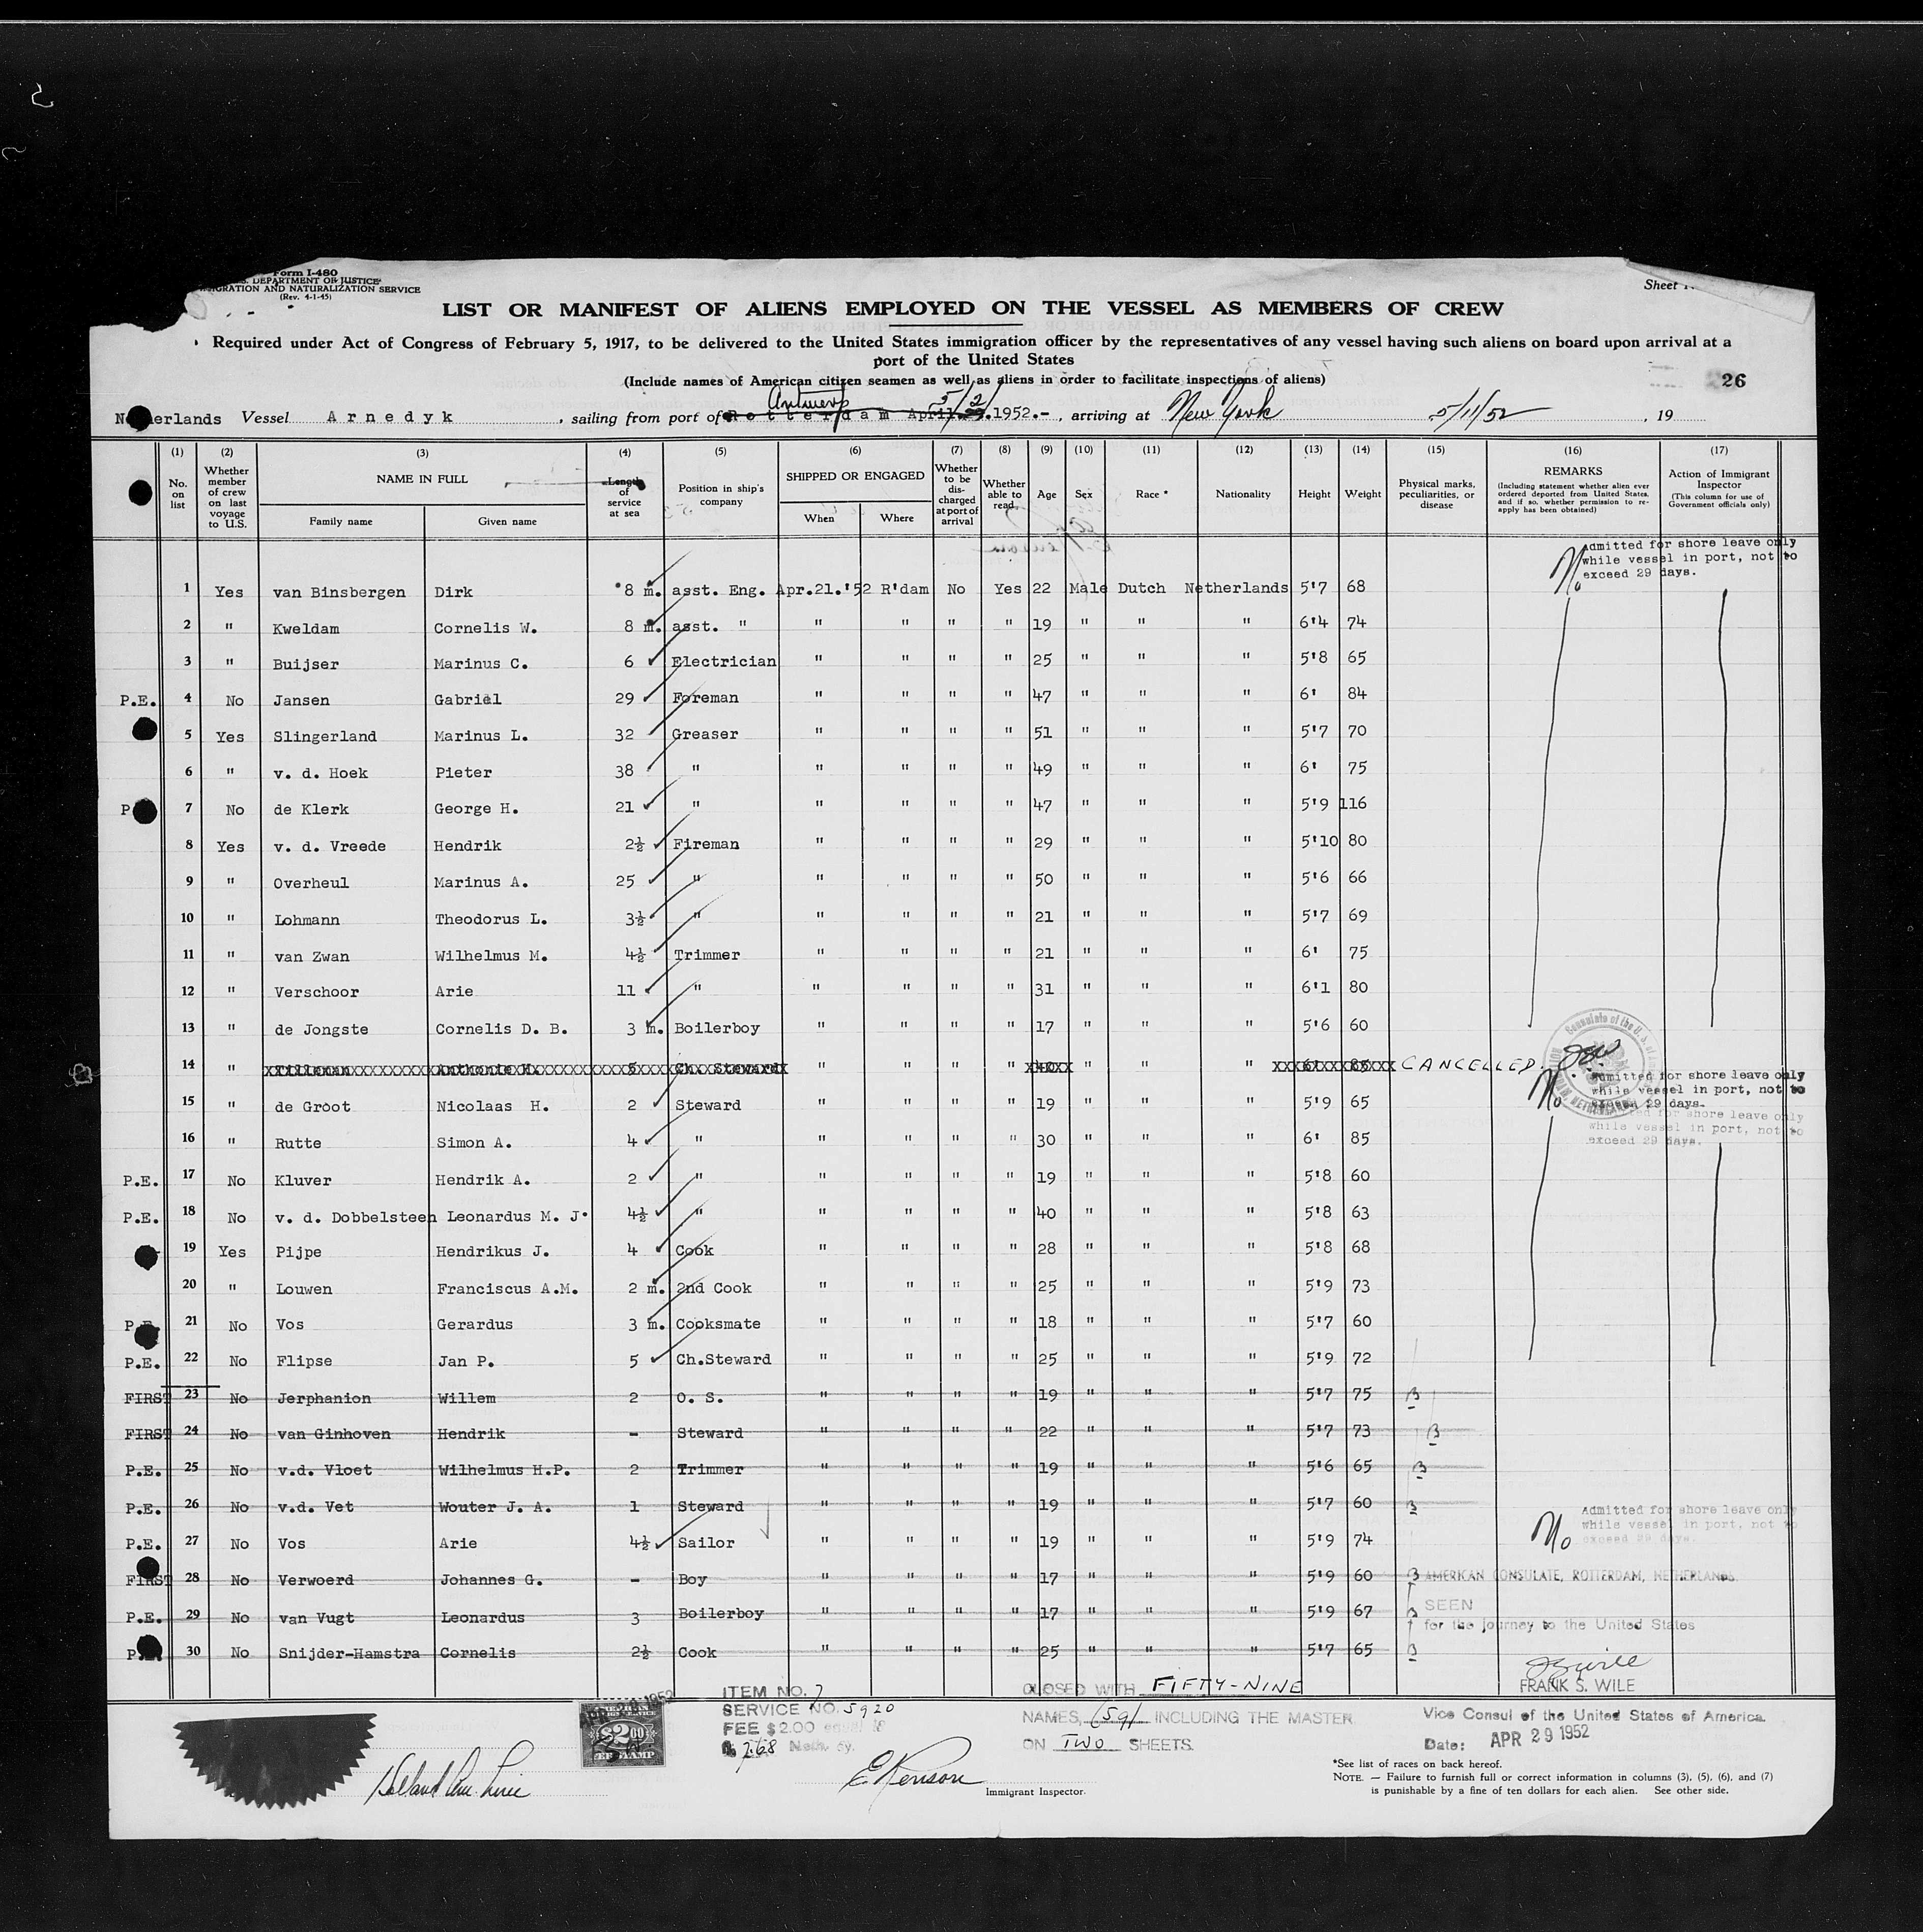 Form I-480
DEPARTMENT OF JUSTICE
IMMIGRATION AND NATURALIZATION SERVICE
(Rev. 4-1-45)
Sheet
LIST OR MANIFEST OF ALIENS EMPLOYED ON THE VESSEL AS MEMBERS OF CREW
Required under Act of Congress of February 5, 1917, to be delivered to the United States immigration officer by the representatives of any vessel having such aliens on board upon arrival at a
port of the United States
(Include names of American citizen seamen as well as aliens in order to facilitate inspections of aliens)
26
Netherlands Vessel Arnedyk , sailing from port of Rotterdam April Antwerp 5/2/ 1952.- , arriving at New York 5/11/52 , 19
(1) (2) (3) (4) (5) (6) (7) (8) (9) (10) (11) (12) (13) (14) (15) (16) (17)
No. on list
Whether member of crew on last voyage to U.S.
NAME IN FULL
Family name Given name
Length of service at sea
Position in ship's company
SHIPPED OR ENGAGED
When Where
Whether to be discharged at port of arrival
Whether able to read
Age
Sex
Race *
Nationality
Height
Weight
Physical marks, peculiarities, or disease
REMARKS
(Including statement whether alien ever ordered deported from United States, and if so, whether permission to re-apply has been obtained)
Action of Immigrant Inspector
(This column for use of Government officials only)
No Admitted for shore leave only
while vessel in port, not to
exceed 29 days.
1 Yes van Binsbergen Dirk 8 m. asst. Eng. Apr.21.'52 R'dam No Yes 22 Male Dutch Netherlands 5'7 68
2 " Kweldam Cornelis W. 8 m. asst. " " " " " 19 " " " 6'4 74
3 " Buijser Marinus C. 6 Electrician " " " " 25 " " " 5'8 65
P.E. 4 No Jansen Gabriël 29 Foreman " " " " 47 " " " 6' 84
5 Yes Slingerland Marinus L. 32 Greaser " " " " 51 " " " 5'7 70
6 " v. d. Hoek Pieter 38 " " " " " 49 " " " 6' 75
P 7 No de Klerk George H. 21 " " " " " 47 " " " 5'9 116
8 Yes v. d. Vreede Hendrik 2½ Fireman " " " " 29 " " " 5'10 80
9 " Overheul Marinus A. 25 " " " " " 50 " " " 5'6 66
10 " Lohmann Theodorus L. 3½ " " " " " 21 " " " 5'7 69
11 " van Zwan Wilhelmus M. 4½ Trimmer " " " " 21 " " " 6' 75
12 " Verschoor Arie 11 " " " " " 31 " " " 6'1 80
13 " de Jongste Cornelis D. B. 3 m. Boilerboy " " " " 17 " " " 5'6 60
14 " Tilleman Anthonie H. 5 Ch. Steward " " " " 40 " " " 6' 85 CANCELLED.
No Admitted for shore leave only
while vessel in port, not to
exceed 29 days.
15 " de Groot Nicolaas H. 2 Steward " " " " 19 " " " 5'9 65
Admitted for shore leave only
while vessel in port, not to
exceed 29 days.
16 " Rutte Simon A. 4 " " " " " 30 " " " 6' 85
P.E. 17 No Kluver Hendrik A. 2 " " " " " 19 " " " 5'8 60
P.E. 18 No v. d. Dobbelsteen Leonardus M. J. 4½ " " " " " 40 " " " 5'8 63
19 Yes Pijpe Hendrikus J. 4 Cook " " " " 28 " " " 5'8 68
20 " Louwen Franciscus A.M. 2 m. 2nd Cook " " " " 25 " " " 5'9 73
P.E. 21 No Vos Gerardus 3 m. Cooksmate " " " " 18 " " " 5'7 60
P.E. 22 No Flipse Jan P. 5 Ch.Steward " " " " 25 " " " 5'9 72
FIRST 23 No Jerphanion Willem 2 O. S. " " " " 19 " " " 5'7 75
FIRST 24 No van Ginhoven Hendrik - Steward " " " " 22 " " " 5'7 73
P.E. 25 No v.d. Vloet Wilhelmus H.P. 2 Trimmer " " " " 19 " " " 5'6 65
P.E. 26 No v.d. Vet Wouter J. A. 1 Steward " " " " 19 " " " 5'7 60
No Admitted for shore leave only
while vessel in port, not to
exceed 29 days.
P.E. 27 No Vos Arie 4½ Sailor " " " " 19 " " " 5'9 74
FIRST 28 No Verwoerd Johannes G. - Boy " " " " 17 " " " 5'9 60
AMERICAN CONSULATE, ROTTERDAM, NETHERLANDS.
SEEN
P.E. 29 No van Vugt Leonardus 3 Boilerboy " " " " 17 " " " 5'9 67
for the journey to the United States
30 No Snijder-Hamstra Cornelis 2½ Cook " " " " 25 " " " 5'7 65
FRANK S. WILE
Vice Consul of the United States of America.
Date: APR 29 1952
ITEM NO. 7
SERVICE NO. 5920
FEE $2.00 equal to
7.68 Neth. cy.
$2.00
FEE STAMP
CLOSED WITH FIFTY-NINE
NAMES, (59) INCLUDING THE MASTER
ON TWO SHEETS.
Holland Am. Line
Immigrant Inspector.
*See list of races on back hereof.
NOTE. — Failure to furnish full or correct information in columns (3), (5), (6), and (7)
is punishable by a fine of ten dollars for each alien. See other side.